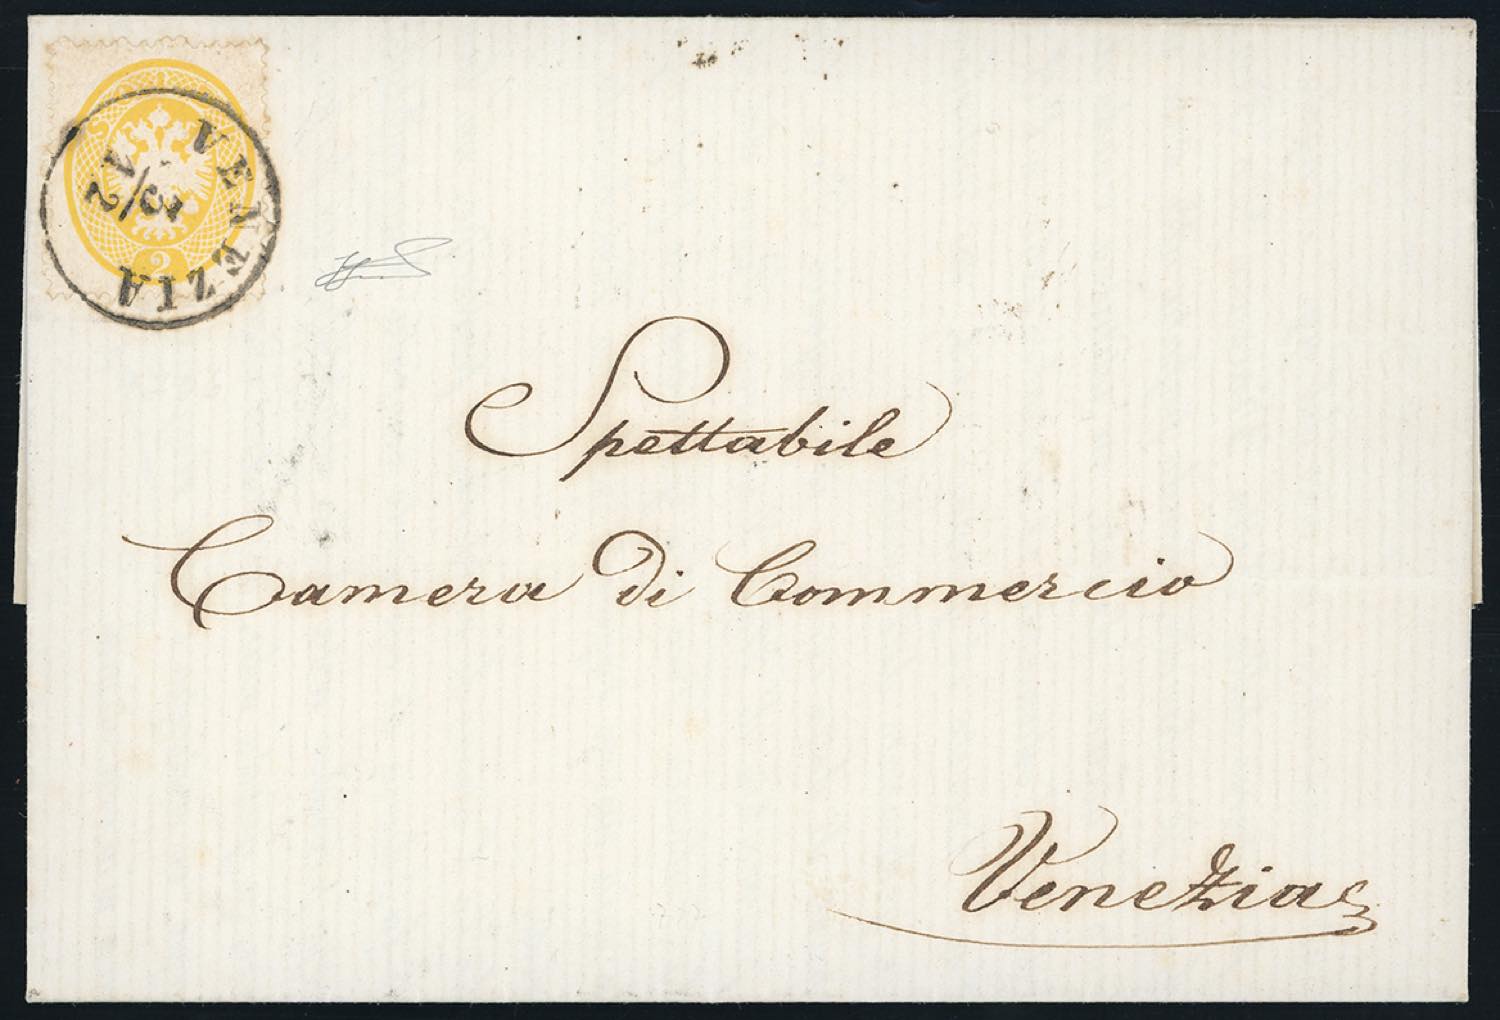 VENEZIA
3/12
2
Spettabile
Camera di Commercio
Venezia